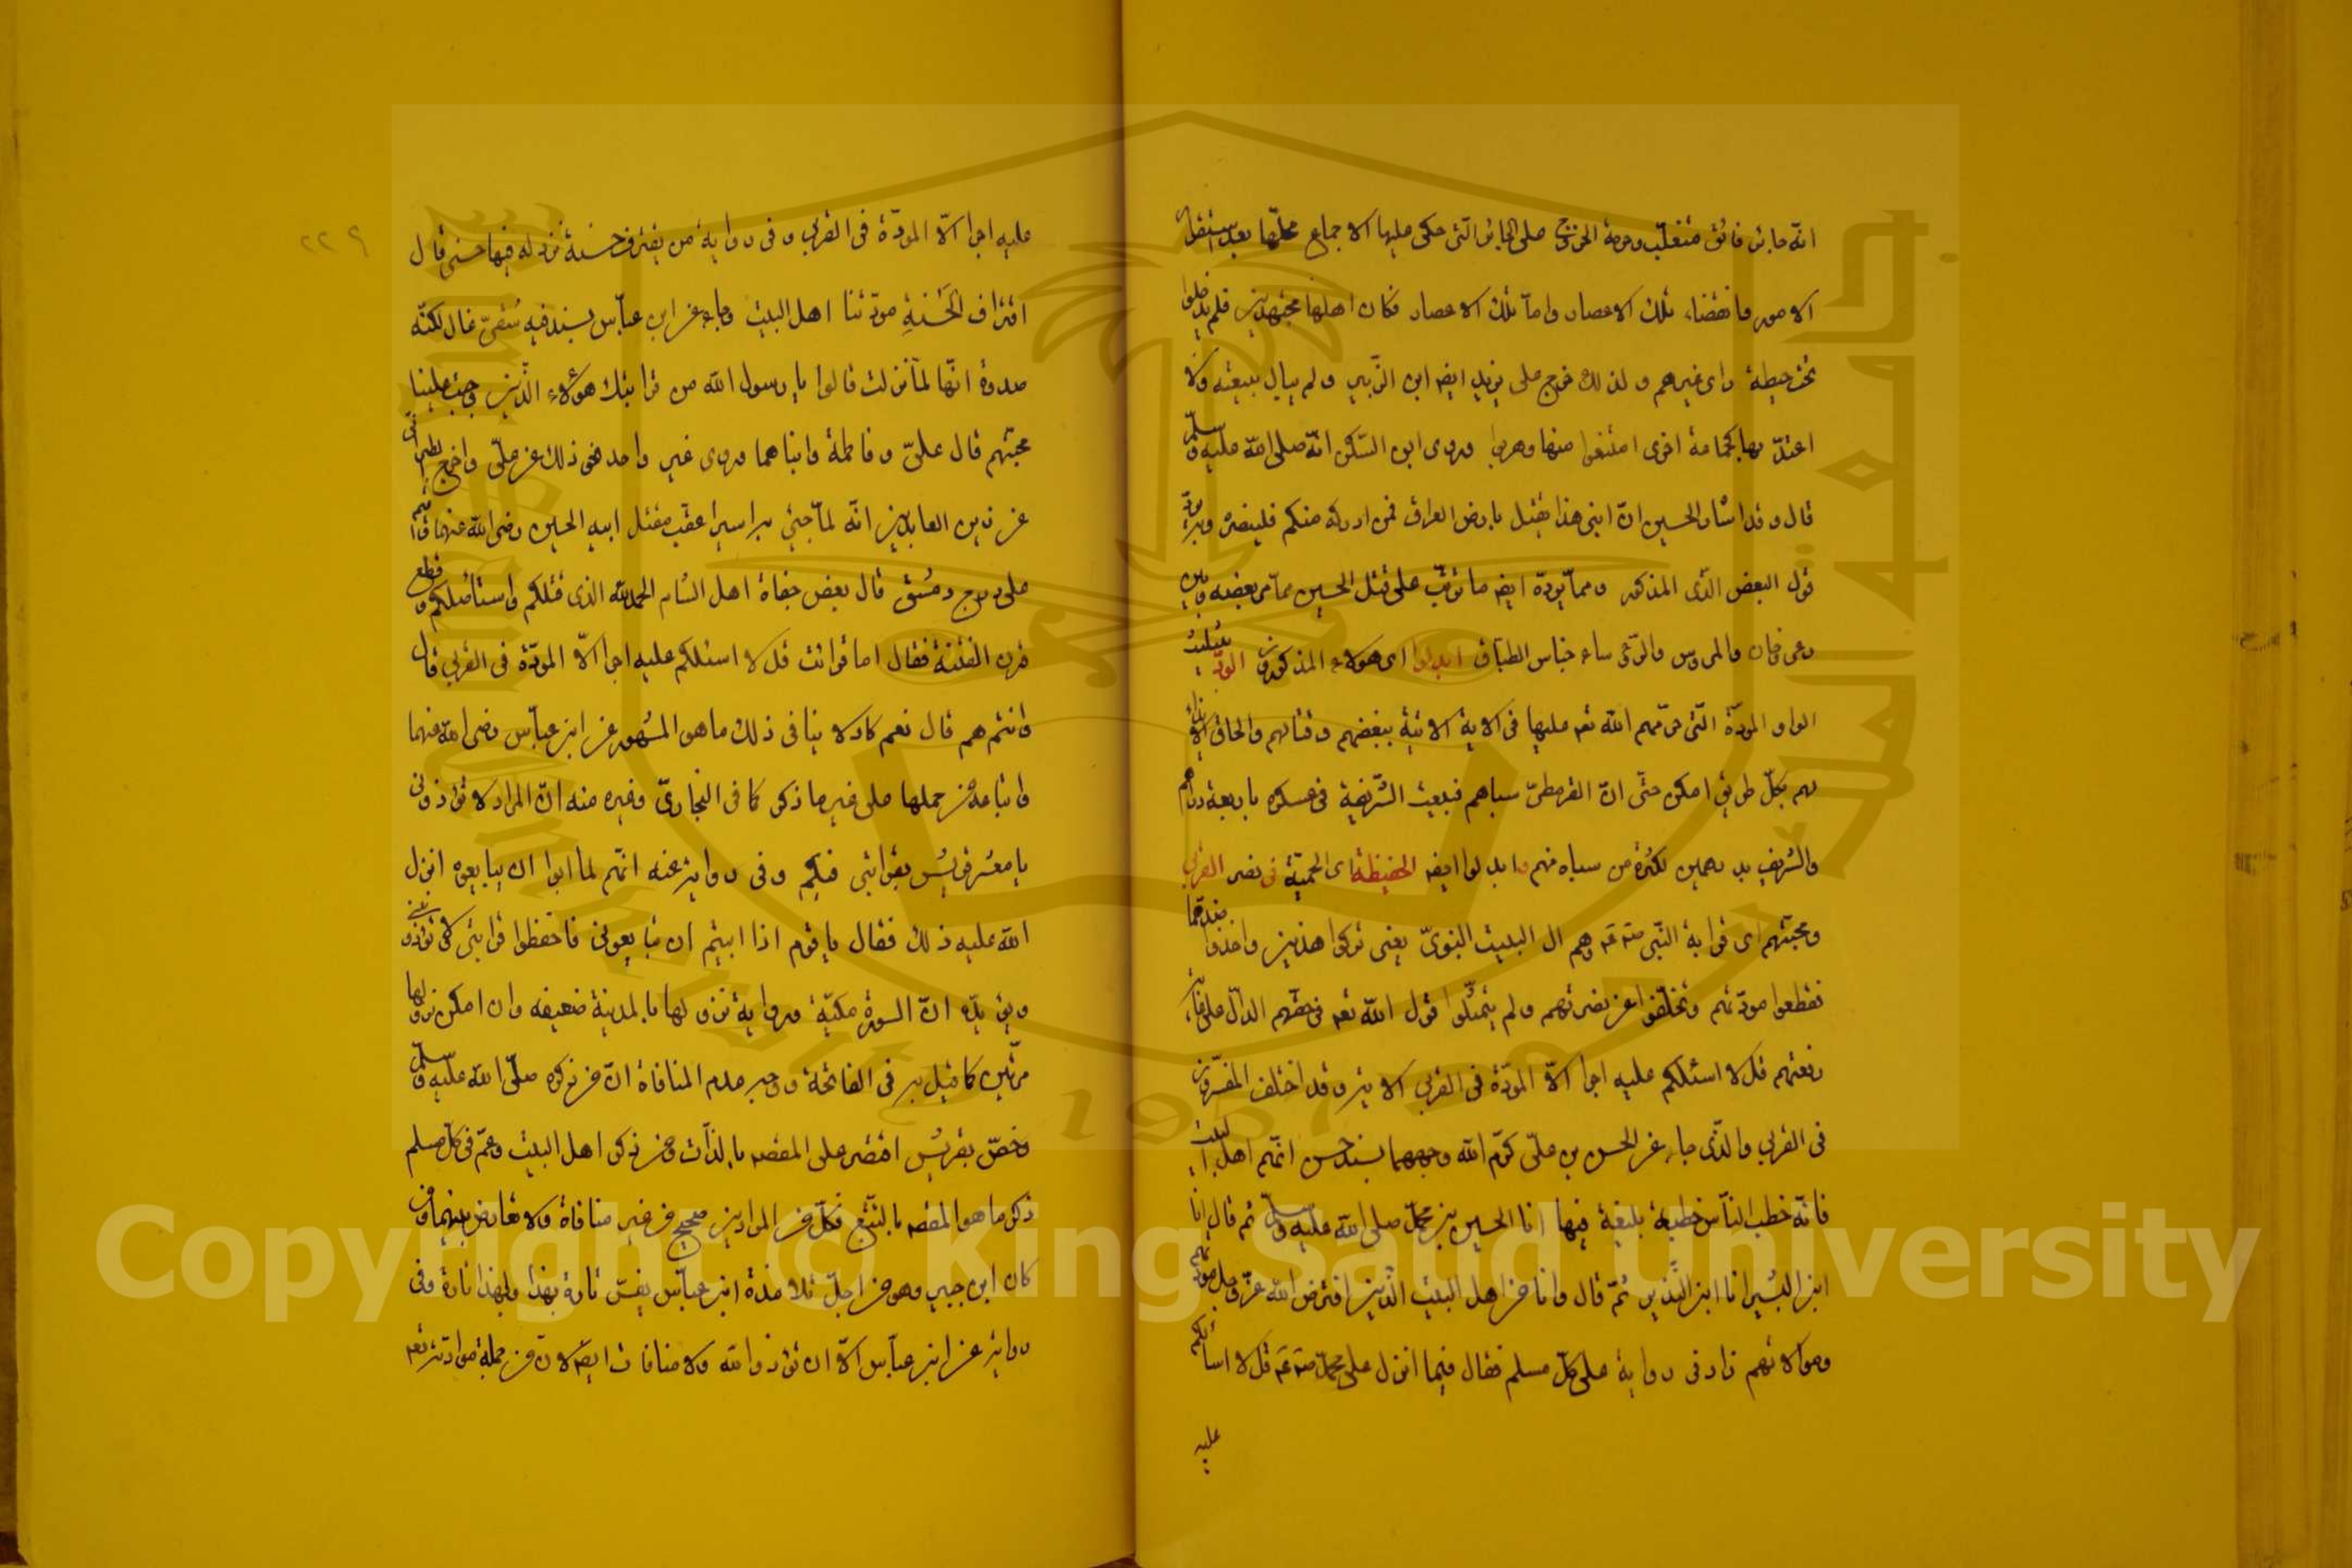 انّه جائر فاسق متغلّب وحرمة الخروج على الجائر الّتى حكى عليها الاجماع محلّها بعد استقرار
الامور وانقضاء تلك الاعصار وامّا تلك الاعصار فكان اهلها مجتهدين فلم يدخلوا
تحت حيطة راى غيرهم ولذلك خرج على يزيد ايضا ابن الزّبير ولم يبال ببيعته ولا
اعتدّ بها كجماعة اخرى امتنعوا منها وهربوا وروى ابن السّكن انّه صلى الله عليه وسلّم
قال وقد اشار للحسين انّ ابنى هذا يقتل بارض العراق فمن ادركه منكم فلينصره ويردّ
قول البعض الّذى المذكور وممّا يردّه ايضا ما ترتّب على قتل الحسين ممّا مر بعضه وبين
رعى ورعى ساء جناس الطباق ابدلوا اى هؤلاء المذكورون الودّ بتثليث
الواو المودّة الّتى حرّضهم الله تعه عليها فى الاية الاتية ببغضهم وقتالهم والحاق الايذاء
لهم بكلّ طريق امكن حتّى انّ القرمطىّ سباهم فبيعت الشّريفة فى عسكره باربعة دراهم
والشريف بدرهمين لكثرة من سباه منهم وابدلوا ايضا الحفيظة اى الحميّة فى نصر القربى
ومحبّتهم اى قرابة النّبى صته عه وهم ال البيت النبوىّ يعنى تركوا هذين واخذوا ضدّهما
فقطعوا مودّتهم وتخلّفوا عن نصرتهم ولم يتمثّلوا قول الله تعه فى حقّهم الدالّ على غاية
رفعتهم قل لا اسئلكم عليه اجرا الاّ المودّة فى القربى الاية وقد اختلف المفسّرون
فى القربى والّذى جاء عن الحسن بن علىّ كرّم الله وجههما بسند حسن انّهم اهل البيت
فانّه خطب النّاس خطبة بليغة فيها انا الحسن بن محمّد صلى الله عليه وسلّم ثم قال انا
ابن البشير انا ابن النّذير ثمّ قال وانا من اهل البيت الّذين افترض الله عزّ وجلّ مودّتهم
وموالاتهم زاد فى رواية على كلّ مسلم فقال فيما انزل على محمّد صته عه قل لا اسألكم
عليه
٢٢٩
عليه اجرا الاّ المودّة فى القربى وفى رواية من يقترف حسنة نزد له فيها حسنى قال
اقتراف الحسنة مودّتنا اهل البيت وجاء عن ابن عبّاس بسند فيه شيعىّ غال لكنّه
صدوق انّها لمّا نزلت قالوا يا رسول الله من قرابتك هؤلاء الّذين وجبت علينا
محبّتهم قال علىّ وفاطمة وابناهما وروى غير واحد نحو ذلك عن علىّ واخرج الطبرانى
عن زين العابدين انّه لمّا جئ به اسيرا عقب مقتل ابيه الحسين رضى الله عنهما واقيم
على درج دمشق قال بعض جفاة اهل الشام الحمد لله الذى قتلكم واستأصلكم وقطع
قرن الفتنة فقال اما قرأت قل لا اسئلكم عليه اجرا الاّ المودّة فى القربى قال
وانتم هم قال نعم كاد لا ينافى ذلك ما هو المشهور عن ابن عبّاس رضى الله عنهما
واتباعه من حملها على غير ما ذكر كما فى البخارىّ وغيره منه انّ المراد لا تؤذونى
يا معشر قريش بقرابتى فيكم وفى رواية عنه انّهم لما ابوا ان يبايعوه انزل
الله عليه ذلك فقال يا قوم اذا ابيتم ان تبايعونى فاحفظوا قرابتى لا تؤذونى
ويؤيّده انّ السورة مكيّة ورواية نزولها بالمدينة ضعيفه وان امكن نزولها
مرّتين كما قيل به فى الفاتحة ووجه عدم المنافاة انّ من ذكره صلّى الله عليه وسلّم
وخصّ بقريش اقتصر على المقصد بالذّات ومن ذكر اهل البيت وعمّ فى كلّ مسلم
ذكر ما هو المقصد بالتّبع فكلّ من المرادين صحيح من غير منافاة ولا تعارض بينهما ومن
كان ابن جبير وهو من اجلّ تلامذة ابن عبّاس يفسّر تارة بهذا وبهذا تارة وفى
رواية عن ابن عبّاس الاّ ان تؤدّوا الله ولا منافات ايضا لان من جملة موادّته تعه